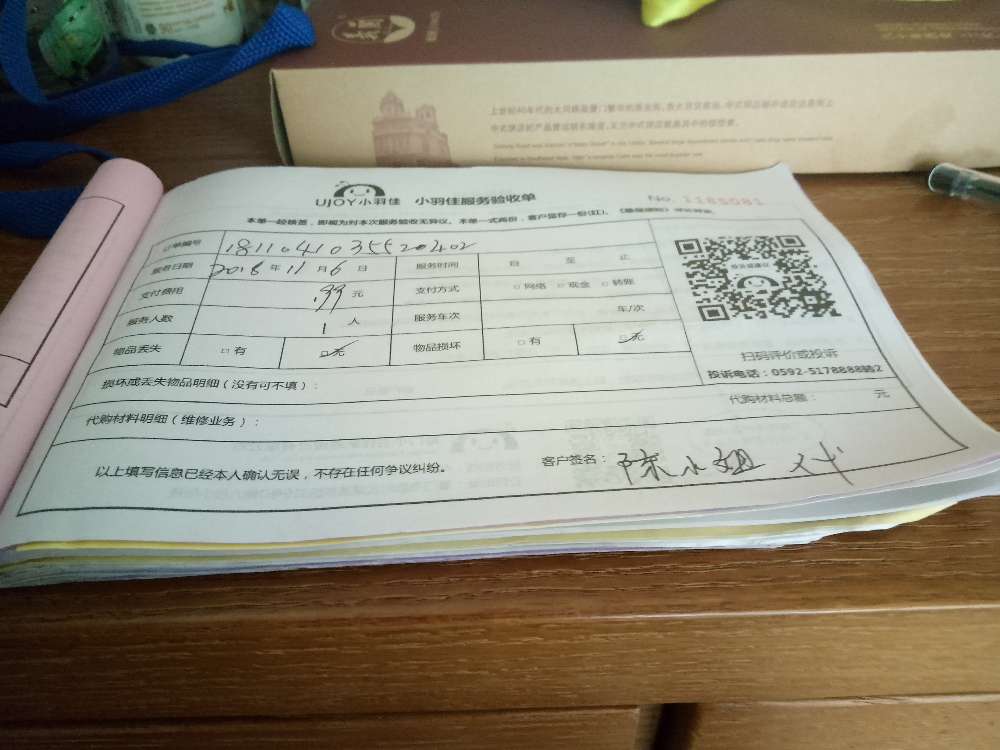 上世纪40年代的大同路是厦门繁华的商业街,
UJOY小羽佳 小羽佳服务验收单 No. 1185081
本单一经签署,即视为对本次服务验收无异议。本单一式两份,客户留存一份(红)。
订单编号 181104103552402
服务日期 2018 年 11 月 6 日 服务时间 自 至 止
支付费用 99 元 支付方式 □ 网络 □ 现金 □ 转账
服务人数 1 人 服务车次 车/次
物品丢失 □ 有 □ 无 物品损坏 □ 有 □ 无
扫码评价或投诉
投诉电话:0592-5178888转2
损坏或丢失物品明细(没有可不填):
代购材料明细(维修业务): 代购材料总额: 元
以上填写信息已经本人确认无误,不存在任何争议纠纷。 客户签名: 陈小姐 代